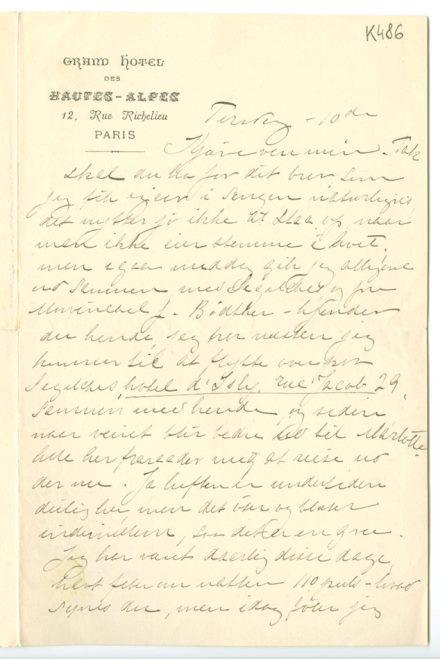 K486
GRAND HOTEL
DES
HAUTES-ALPES
12, Rue Richelieu
PARIS
Tirsdag - 10de
Kjære ven min. Tak
skal du ha for det brev som
jeg fik igaar i sengen naturligvis
det nytter jo ikke at staa op, naar
man ikke eier stemme i livet.
men igaar middag gik jeg alligevel
ud sammen med Segelcke og fru
f. Bødtker - kjender
du hende, jeg tror næsten jeg
kommer til at flytte over hos
Segelckes, hotel d'Isly, rue Jacob 29.
sammen med hende, og siden
naar veiret blir bedre ud til Marlotte.
alle her fraraader meg at reise ud
der nu. Ja luften er undertiden
deilig her men det øser og blæser
indimellem, saa det er en gru.
Jeg har været daarlig disse dage
havt feber om natten 110 puls - hvad
synes du, men idag føler jeg